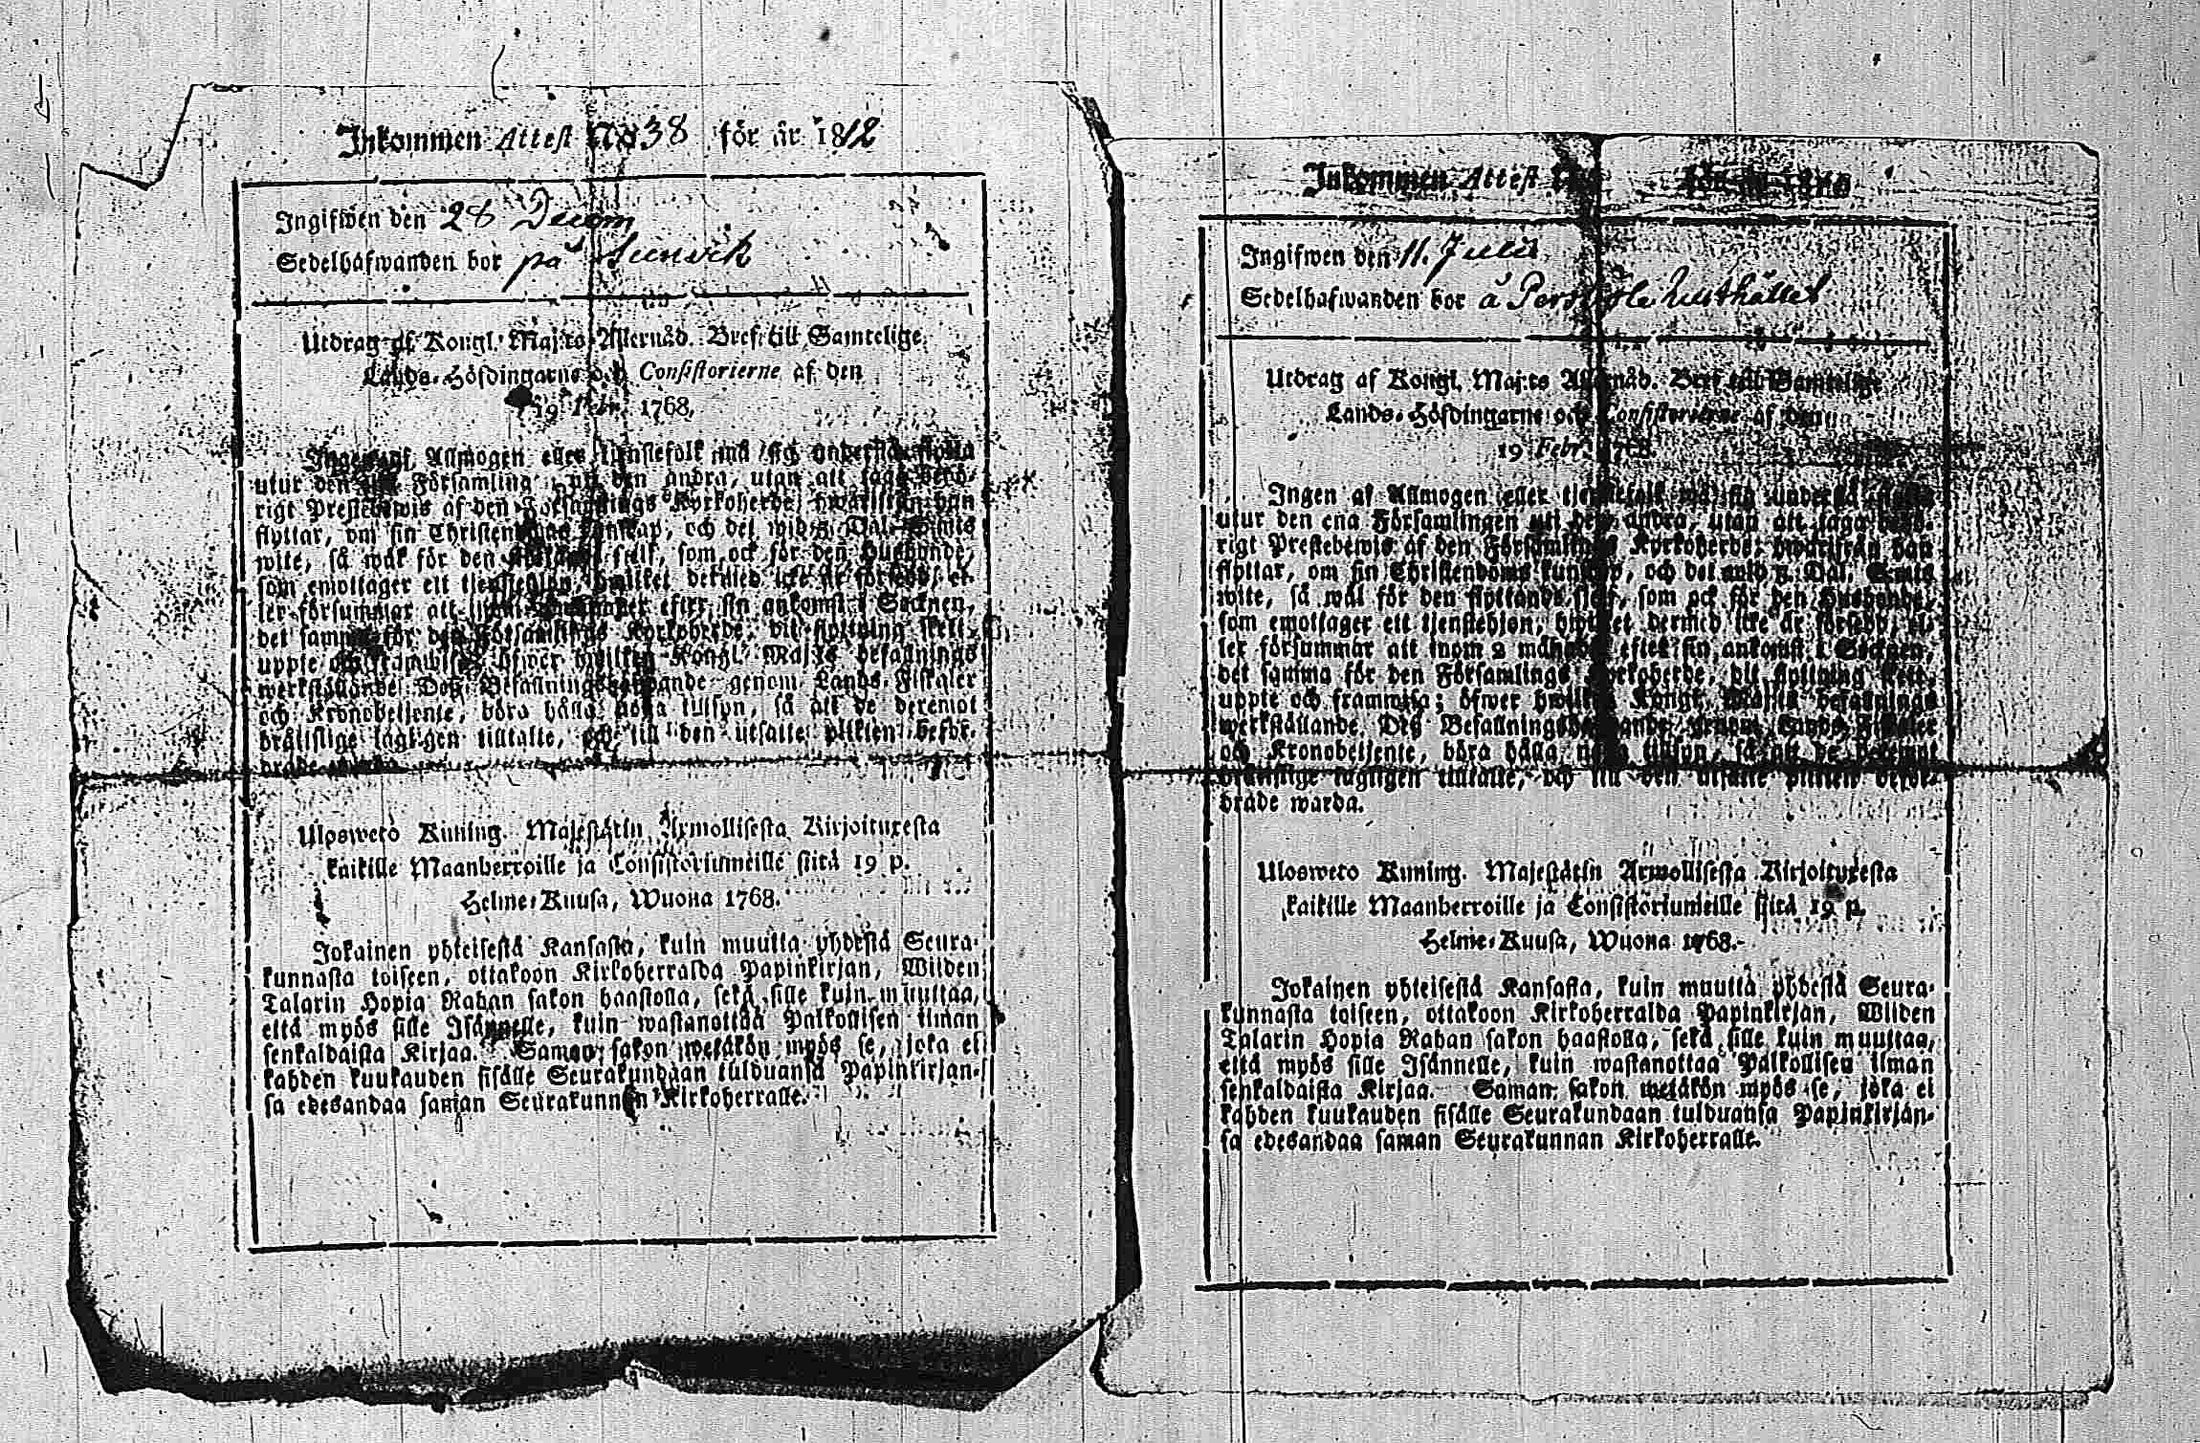 Inkommen Attest No 38 för år 1812
Ingifwen den 28 Decem
Sedelhafwanden bor på Sunvik
Utdrag af Kongl. Maj:ts Allernåd. Bref till Samtelige
Lands-Höfdingarne och Consistorierne af den
19 Febr. 1768.
Ingen af Allmogen eller tjenstefolk må sig understå flytta
utur den ena Församling uti den andra, utan att taga behö-
rigt Prestebewis af den Församlings Kyrkoherde, hwarifrån han
flyttar, om sin Christendoms kunskap, och det wid 2. Dal. S:mts
wite, så wäl för den flyttande sielf, som ock för den Husbonde,
som emottager ett tjenstehjon, hwilket dermed icke är försedt, el-
ler försummar att inom efter sin ankomst i Socknen,
det samma för den Församlings Kyrkoherde, dit flyttning skett,
uppte och framwisa; öfwer hwilket Kongl. Maj:ts befallnings
werkställande Deß Befallningshafwande genom Lands-Fiskaler
och Kronobetjente, böra hålla noga tillsyn, så att de deremot
bråttslige lagligen tilltalte, och till den utsatte plikten beför-
drade
Ulosweto Kuning. Majestätin Armollisesta Kirjoituxesta
kaikille Maanherroille ja Consistoriumeille siitä 19 p.
Helme-Kuusa, Wuona 1768.
Jokainen yhteisestä Kansasta, kuin muutta yhdestä Seura-
kunnasta toiseen, ottakoon Kirkoherralda Papinkirjan, Wiiden
Talarin Hopia Rahan sakon haastolla, sekä sille kuin muuttaa,
että myös sille Isännelle, kuin wastanottaa Palkollisen ilman
senkaldaista Kirjaa. Saman sakon wetäkön myös se, joka ei
kahden kuukauden sisälle Seurakundaan tulduansa Papinkirjan-
sa edesandaa saman Seurakunnan Kirkoherralle.
Inkommen Attest No för år 18
Ingifwen den 11. Julii
Sedelhafwanden bor å
Utdrag af Kongl. Maj:ts Allernåd. Bref till Samtelige
Lands-Höfdingarne och Consistorierne af den
19 Febr. 1768.
Ingen af Allmogen eller tjenstefolk må sig understå flytta
utur den ena Församlingen uti den andra, utan att taga behö-
rigt Prestebewis af den Församlings Kyrkoherde, hwarifrån han
flyttar, om sin Christendoms kunskap, och det wid 2. Dal. S:mts
wite, så wäl för den flyttande sielf, som ock för den Husbonde,
som emottager ett tjenstehjon, hwilket dermed icke är försedt, el-
ler försummar att inom 2 månader efter sin ankomst i Socknen,
det samma för den Församlings Kyrkoherde, dit flyttning skett,
uppte och framwisa; öfwer hwilket Kongl. Maj:ts befallnings
werkställande Deß Befallningshafwande genom Lands-Fiskaler
och Kronobetjente, böra hålla noga tillsyn, så att de deremot
bråttslige lagligen tilltalte, och till den utsatte plikten beför-
drade warda.
Ulosweto Kuning. Majestätin Armollisesta Kirjoituxesta
kaikille Maanherroille ja Consistoriumeille siitä 19 p.
Helme-Kuusa, Wuona 1768.
Jokainen yhteisestä Kansasta, kuin muutta yhdestä Seura-
kunnasta toiseen, ottakoon Kirkoherralda Papinkirjan, Wiiden
Talarin Hopia Rahan sakon haastolla, sekä sille kuin muuttaa,
että myös sille Isännelle, kuin wastanottaa Palkollisen ilman
senkaldaista Kirjaa. Saman sakon wetäkön myös se, joka ei
kahden kuukauden sisälle Seurakundaan tulduansa Papinkirjan-
sa edesandaa saman Seurakunnan Kirkoherralle.